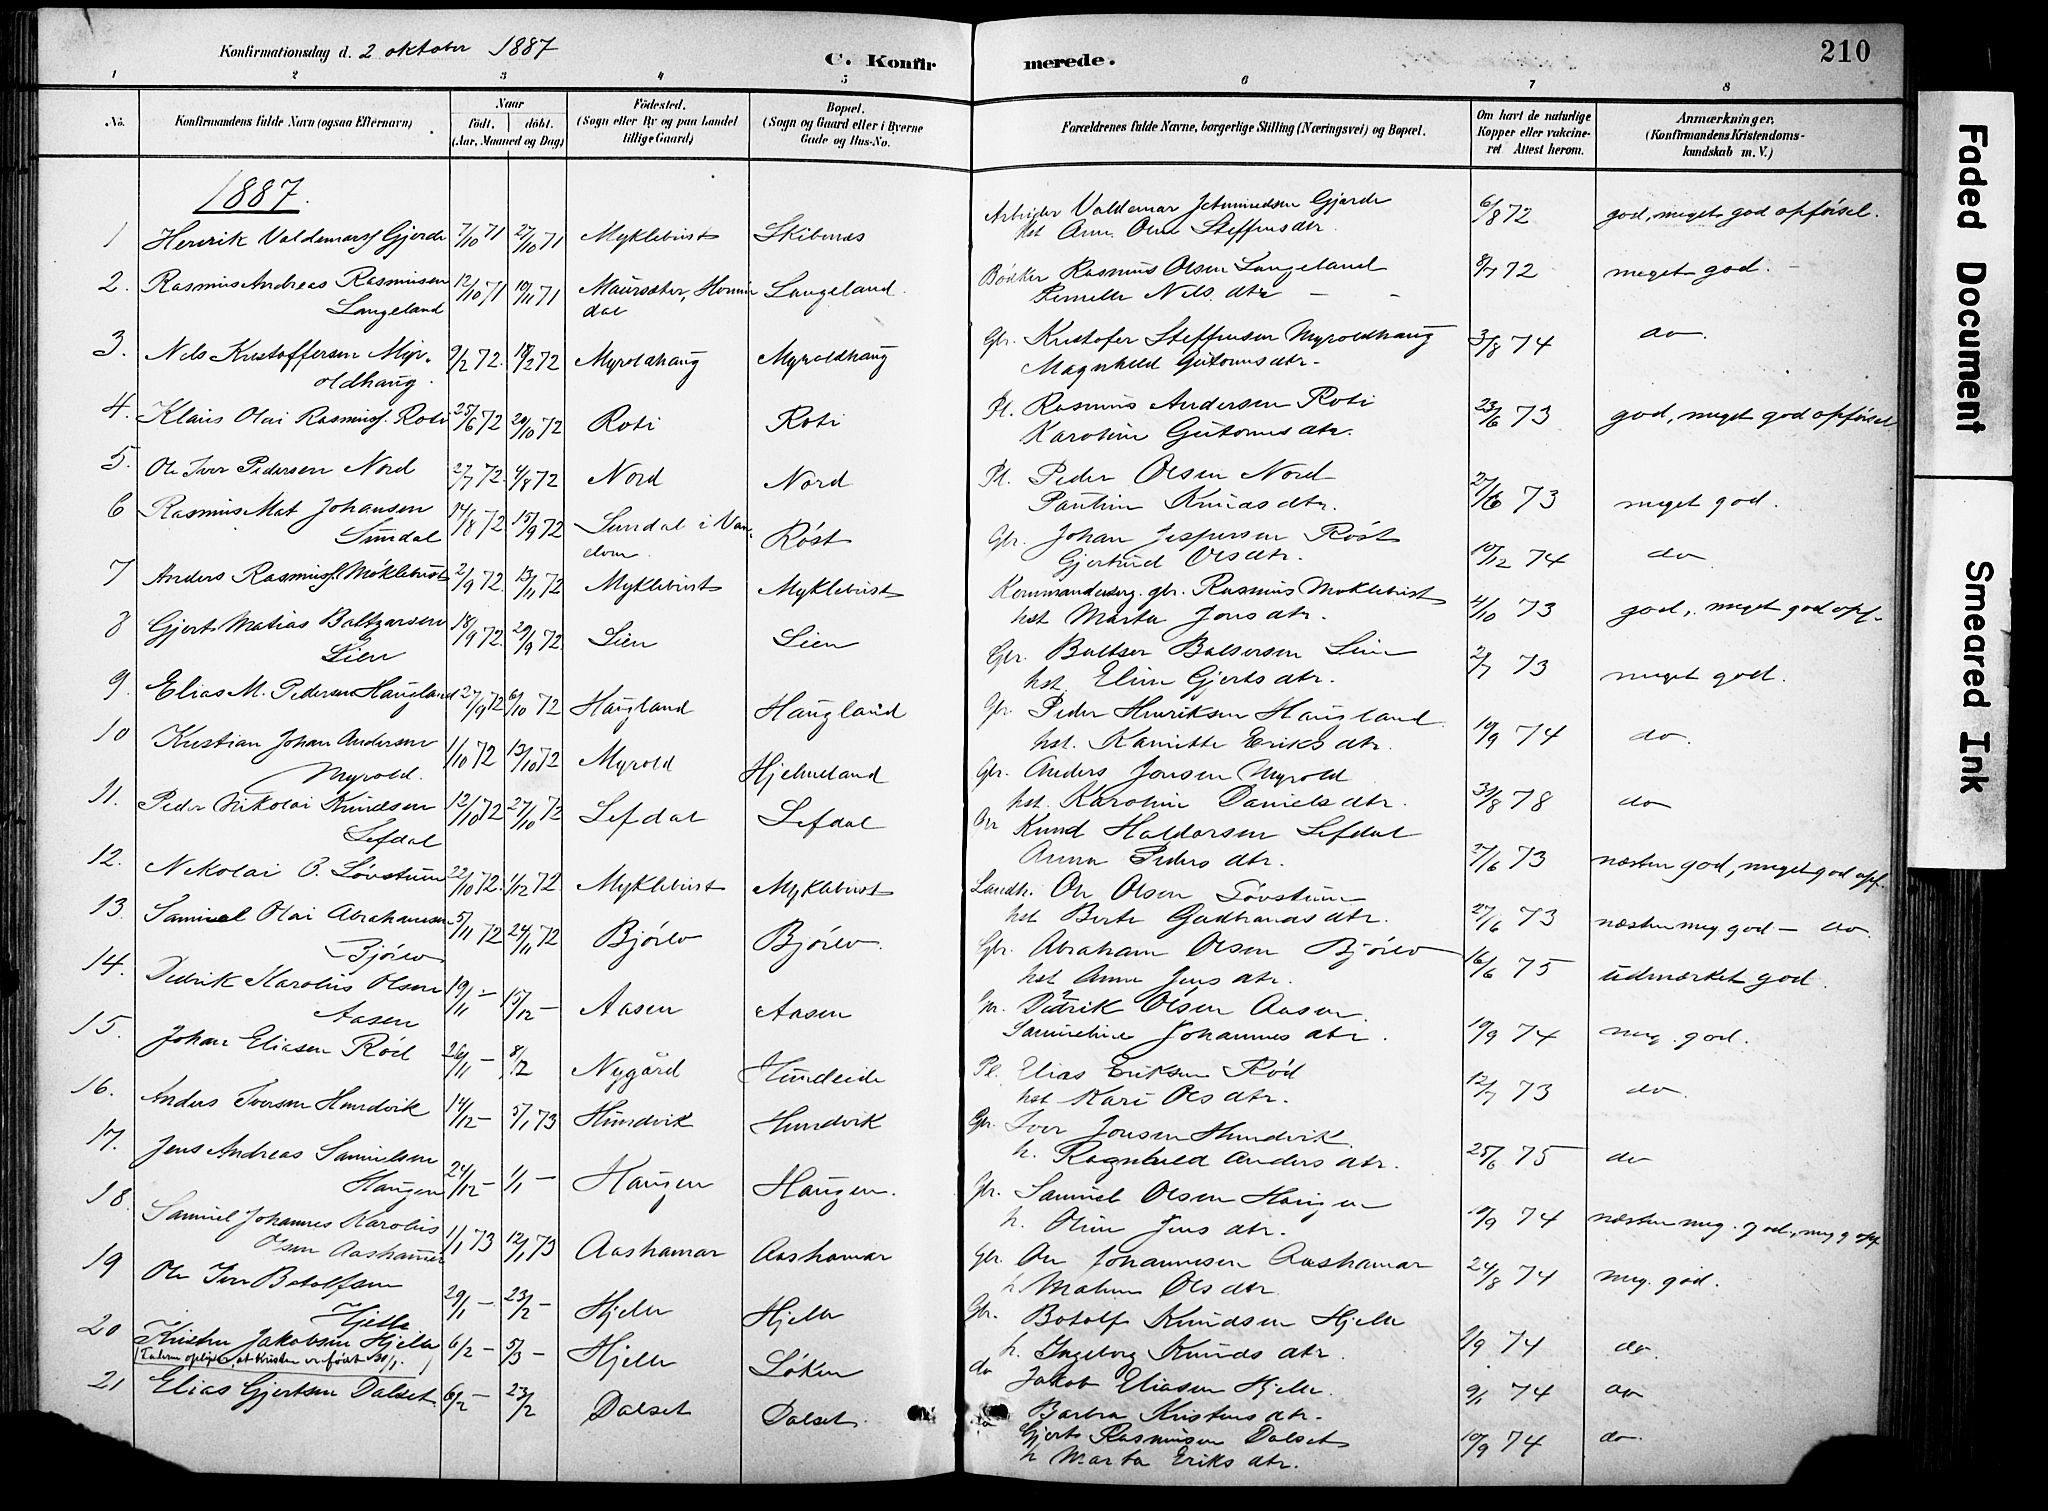 Konfirmationsdag d. 2 oktober 1887
C. Konfirmerede.
210
1 2 3 4 5 6 7 8
No.
Konfirmandens fulde Navn (ogsaa Efternavn)
Naar
født. døbt.
(Aar, Maaned og Dag)
Fødested.
(Sogn eller By og paa Landet
tillige Gaard)
Bopæl.
(Sogn og Gaard eller i Byerne
Gade og Hus-No.
Forældrenes fulde Navne, borgerlige Stilling (Næringsvei) og Bopæl.
Om havt de naturlige
Kopper eller vakcine-
ret Attest herom.
Anmærkninger.
(Konfirmandens Kristendoms-
kundskab m. V.)
1887.
1 Henrik Valdemarsf Gjerde 7/10 71 27/10 71 Myklebust Skibenes Arbeider Valdemar Gjerde 6/8 72 god, meget god opførsel.
hst Ane Oline Steffensdtr.
2. Rasmus Andreas Rasmusen 12/10 71 19/11 71 Maursæter, Hornin Langeland. Bødker Rasmus Olsen Langeland 8/7 72 meget god. -
Langeland dal Pernille Nels dtr - -
3. Nels Kristoffersen Myr- 9/2 72. 18/2 72 Myroldhaug Myroldhaug Gbr. Kristofer Steffensen Myroldhaug 3/8 74 do.
oldhaug. Magnhild Gutormsdtr.
4. Klaus Olai Rasmusf. Roti 25/6 72 20/10 72 Roti Roti Pl. Rasmus Andersen Roti 23/6 73 god, meget god opførsel
Karoline Gutormsdtr.
5. Ole Iver Pedersen Nord 2/7 72. 4/8 72 Nord Nord Pl. Peder Olsen Nord 27/6 73 meget god.
Pauline Knudsdtr.
6 Rasmus Mat Johansen 14/8 72 15/9 72 Sundal i Van- Røst Gbr. Johan Jespersen Røst 10/12 74 do
Sundal Gjertrud Olsdtr.
7 Anders Rasmusf Møklebust 2/9 72 13/11 72 Myklebust Myklebust Kommandersorg. gbr. Rasmus Moklebust 4/10 73 god, meget god opf.
hst Marta Jonsdtr.
8 Gjert Matias Baltzarsen 18/9 72. 29/9 72 Lien Lien Gbr. Baltser Balsersen Lien 2/7 73 meget god.
Lien hst. Eline Gjertsdtr.
9. Elias M. Pedersen Haugland 27/9 72 6/10 72 Haugland Haugland Gbr. Peder Henriksen Haugland 10/9 74 do.
hst. Eriks dtr.
10 Kristian Johan Andersen 1/10 72 13/10 72 Myrold Hjelmeland Gbr. Anders Jonsen Myrold 31/8 78 do
Myrold. hst. Karoline Daniels dtr.
11. Peder Nikolai Knudsen 12/10 72 27/10 72 Lefdal Lefdal Gbr Knud Haldorsen Lefdal 27/6 73 næsten god, meget god opf.
Lefdal Anna Peders dtr.
12. Nikolai O. Løvstuen 22/10 72. 1/12 72 Myklebust Myklebust Landh. Ole Olsen Løvstuen 27/6 73 næsten meg god - do.
hst Berte Gudbrands dtr.
13. Samuel Olai Abrahamsen 5/11 72 24/11 72 Bjørlo Bjørlo. Gbr. Abraham Olsen Bjørlo 16/6 75 udmærket god.
Bjørlo hst Anne Jens dtr.
14. Didrik Karolus Olsen 19/11 - 15/12 - Aasen Aasen Gbr. Didrik Olsen Aasen 19/9 74 meg. god.
Aasen Johannes dtr.
15. Johan Eliasen Rød 26/11 - 8/12 Nygård Hundeide Pl. Elias Eriksen Rød 12/7 73 do.
hst Kari Ols dtr.
16. Anders Iversen Hundvik 14/12 - 5/1 73 Hundvik Hundvik Gbr. Iver Jonsen Hundvik 25/6 75 do
h. Ragnhild Anders dtr.
17. Jens Andreas Samuelsen 24/12 - 1/1 - Haugen Haugen. Gbr. Samuel Olsen Haugen 19/9 74 næsten meg. god., meg g opf
Haugen h. Oline Jens dtr.
18. Samuel Johannes Karolus 1/1 73 12/1 73 Aashamar Aashamar Gbr. Ole Johannesen Aashamar 24/8 74 meg. god.
Olsen Aashamar h Malene Ols dtr.
19 Ole Iver Botolfsen 29/1 - 23/2 - Hjelle Hjelle Gbr. Botolf Knudsen Hjelle 2/9 74 do.
Hjelle h. Ingeborg Knuds dtr.
20 Kristen Jakobsen Hjelle 6/2 - 5/3 - Hjelle Løken do Jakob Eliasen Hjelle. 9/1 74 do
(Faderen oplyser, at Kristen er født 30/1.) Barbra Kristens dtr.
21 Elias Gjertsen Dalset 6/2 - 23/2 Dalset Dalset. Gjert Rasmusen Dalset 10/9 74 do.
h Marta Eriks dtr.
Faded Document
Smeared Ink